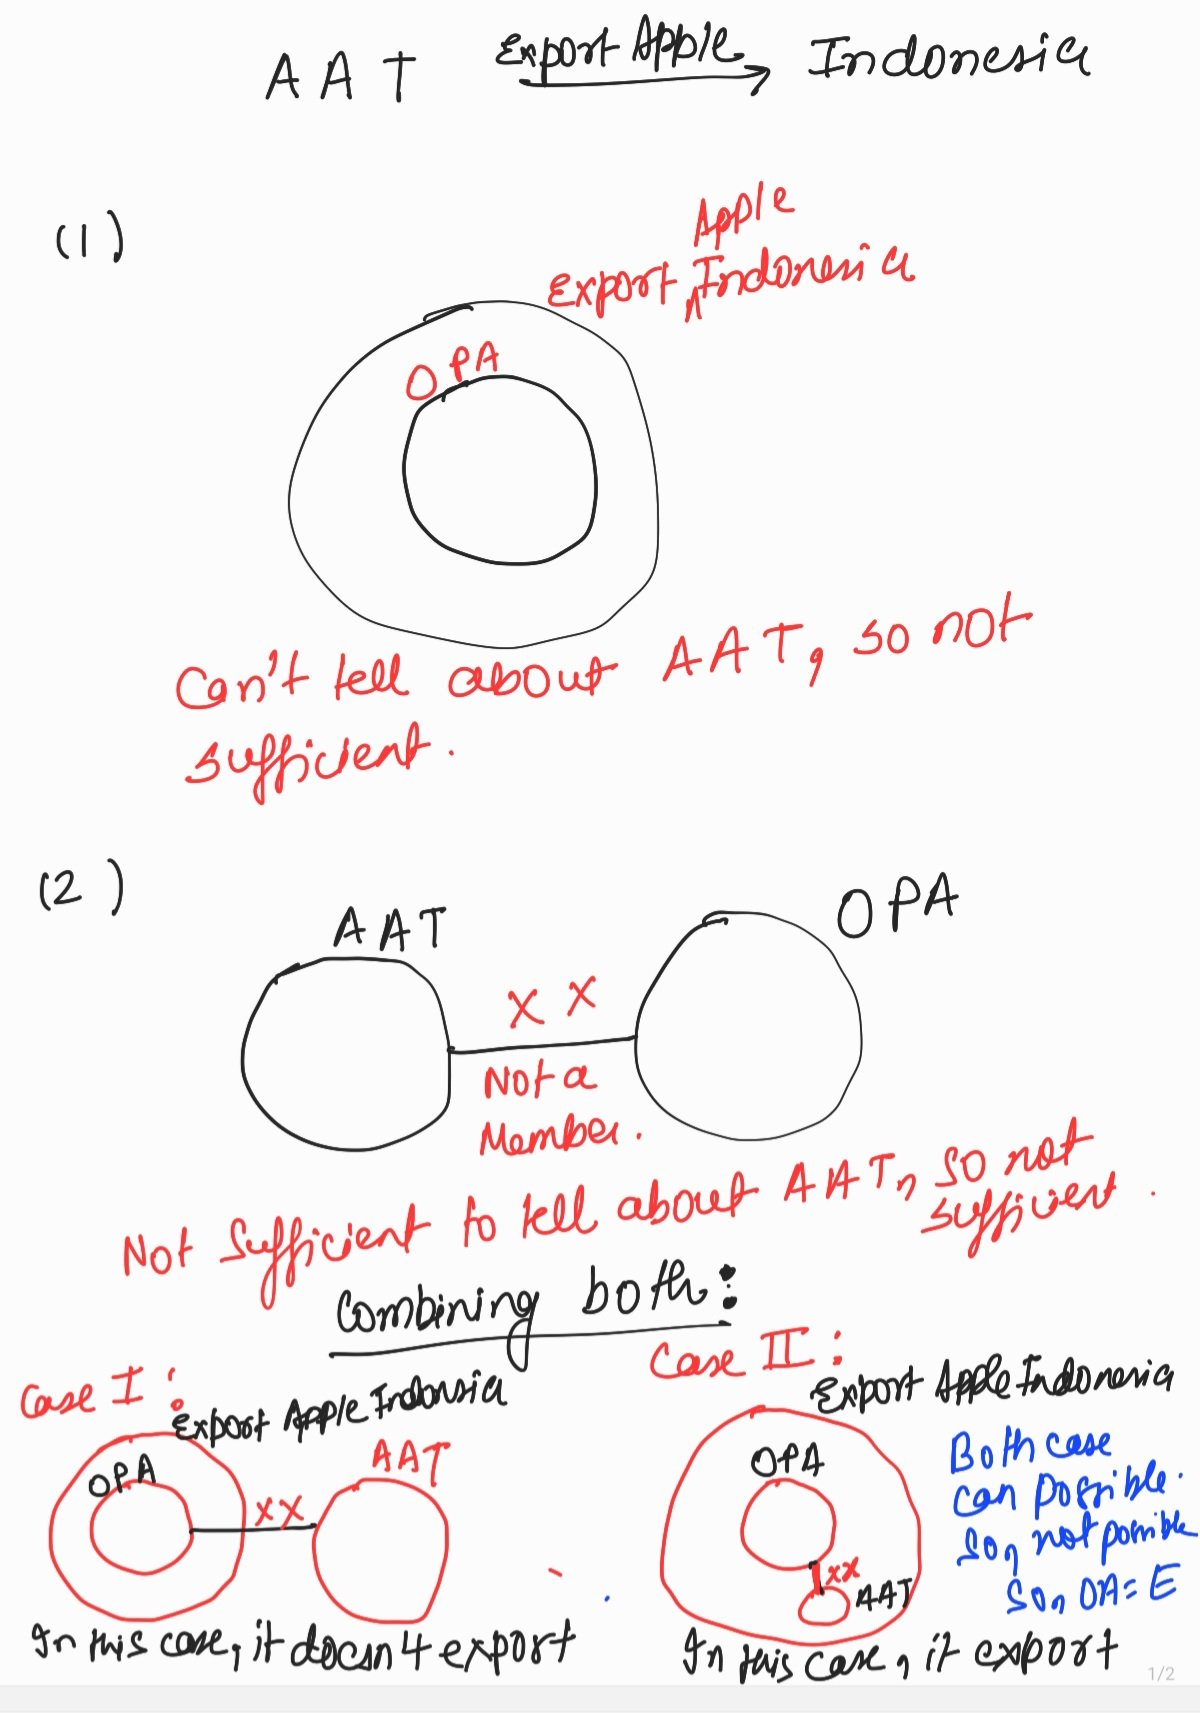 AAT Export Apple Indonesia
(1)
Apple
Export Indonesia
OPA
Can't tell about AAT, so not
sufficient.
(2)
AAT
OPA
X X
Not a
Member.
Not sufficient to tell about AAT, so not
sufficient.
Combining both:
Case I:
Export Apple Indonsia
OPA
AAT
XX
In this case, it doesn't export
Case II:
Export Apple Indonesia
OPA
XX
AAT
In this case, it export
Both case
can possible.
So, not possible
So, OA = E
1/2